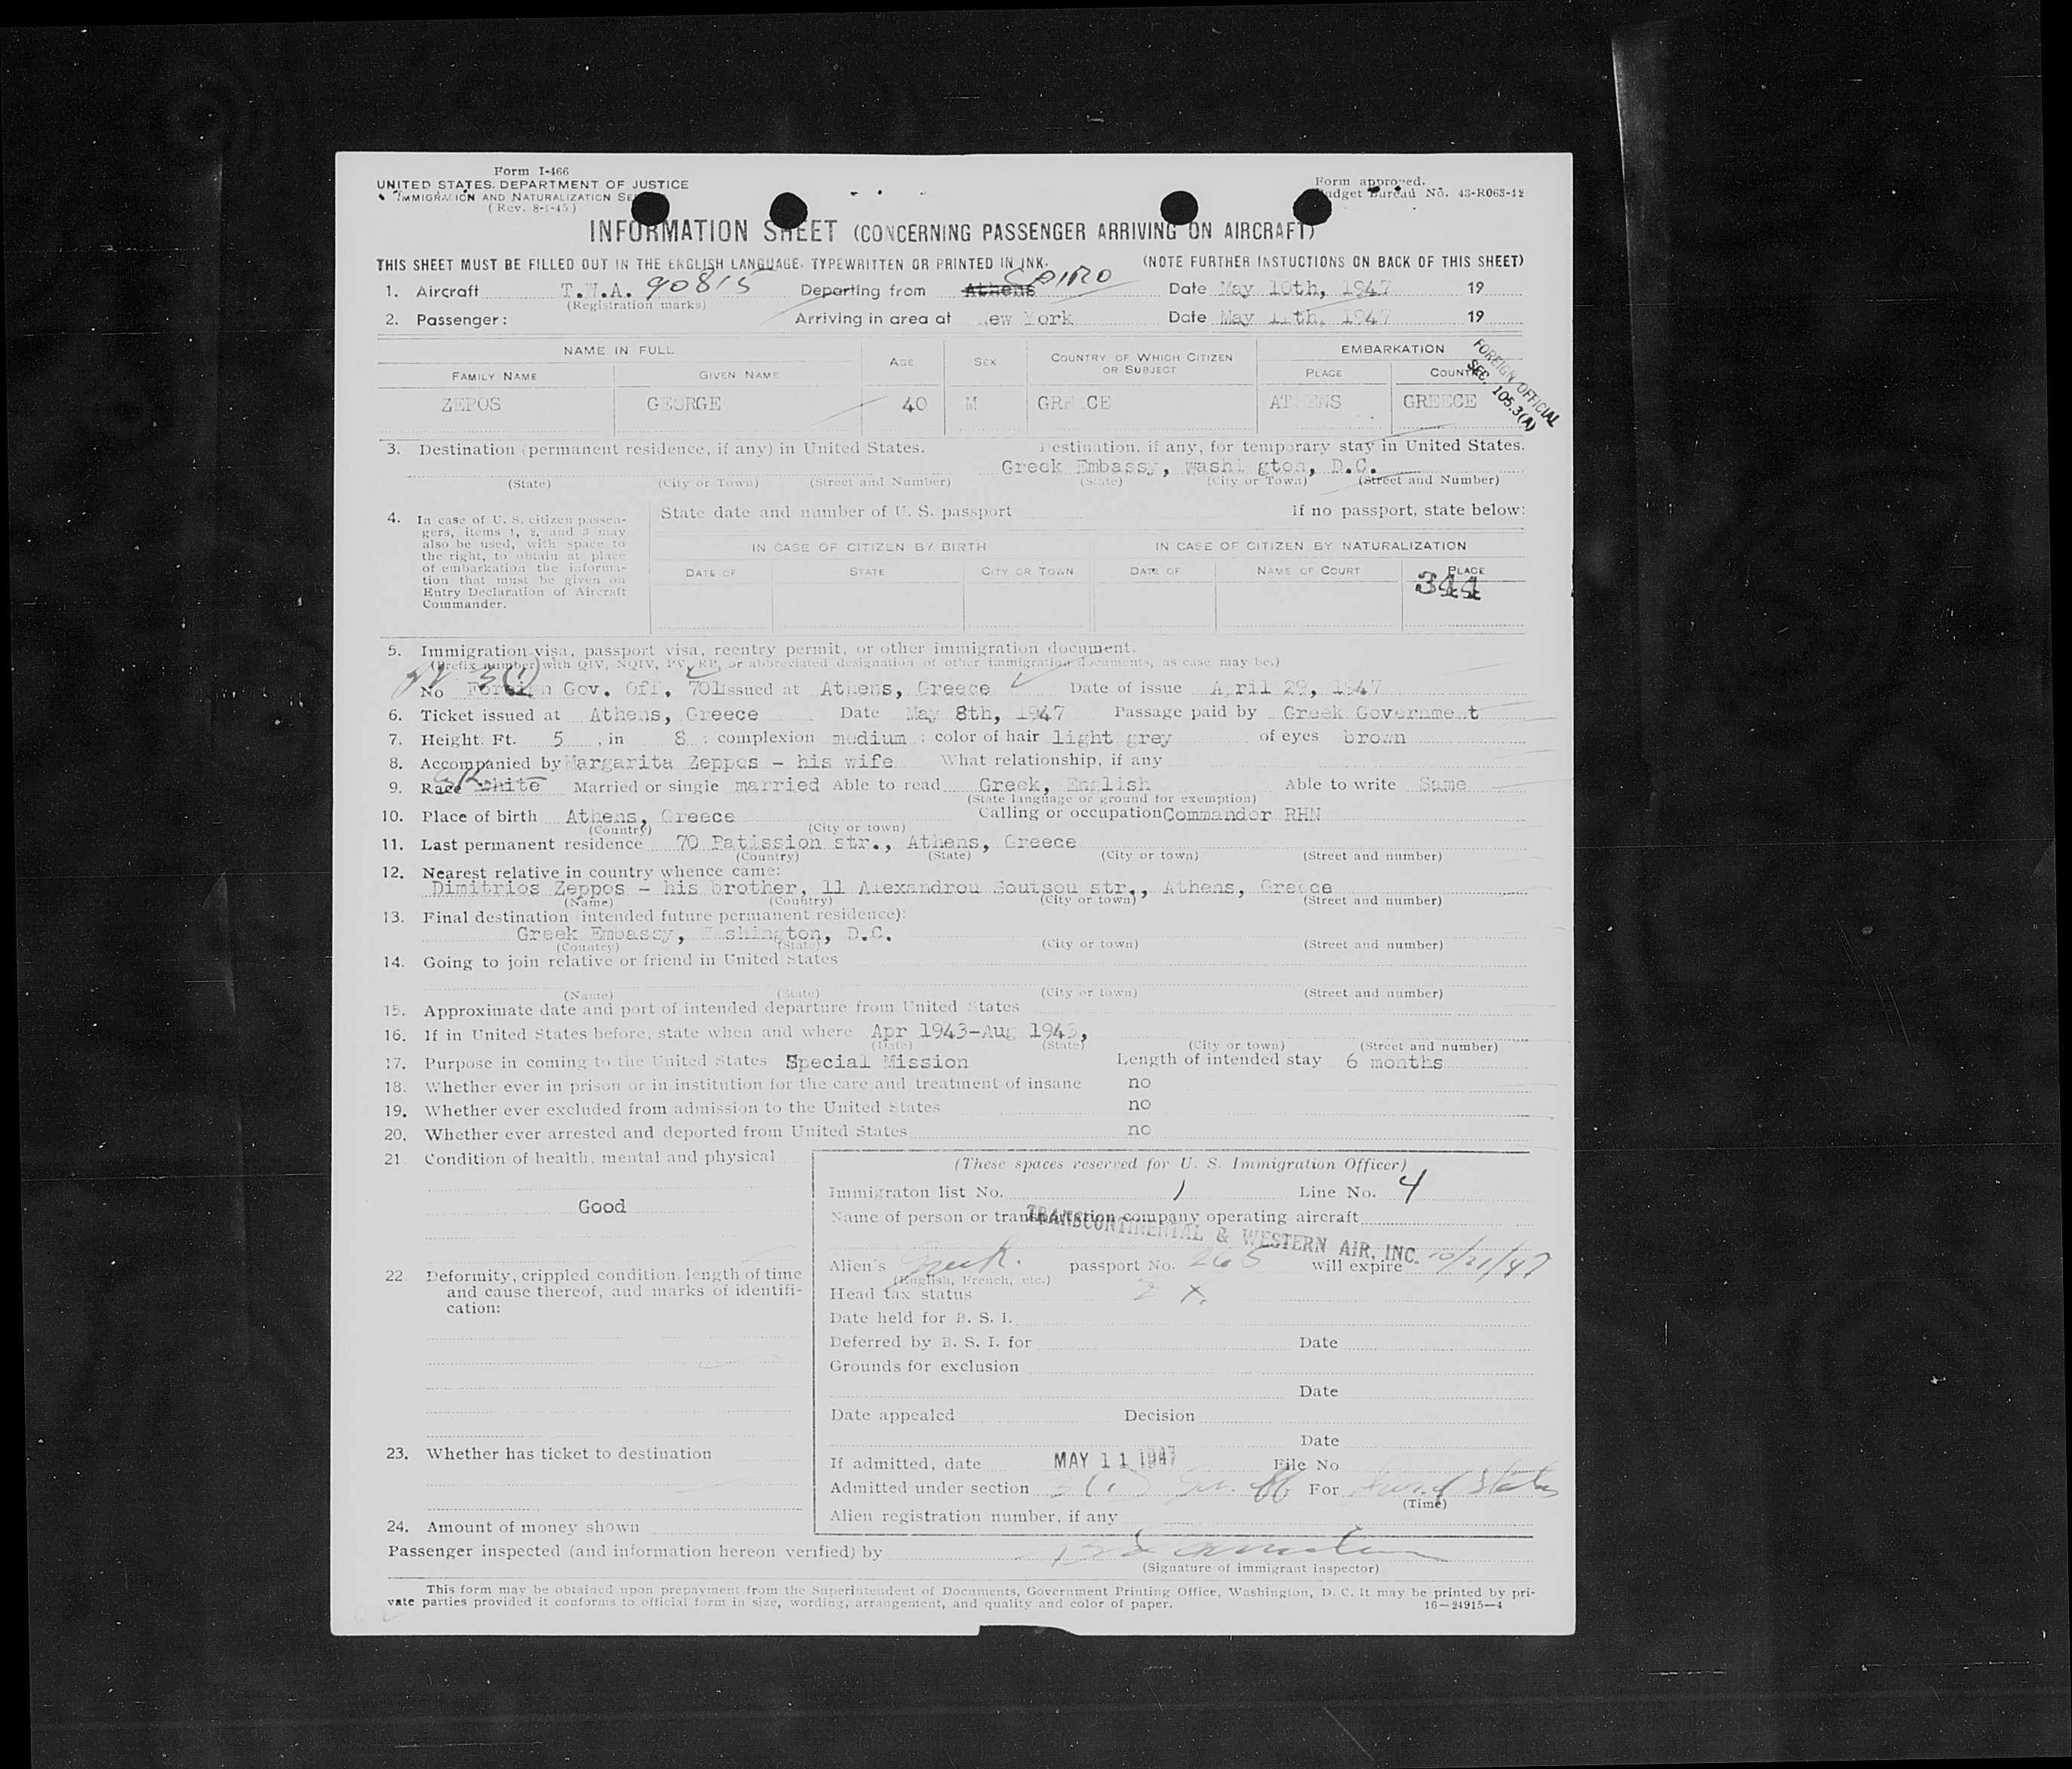 Form I-466
UNITED STATES DEPARTMENT OF JUSTICE
IMMIGRATION AND NATURALIZATION SE
(Rev. 8-1-45)
Form approved.
Budget Bureau No. 43-R063-42
INFORMATION SHEET (CONCERNING PASSENGER ARRIVING ON AIRCRAFT)
THIS SHEET MUST BE FILLED OUT IN THE ENGLISH LANGUAGE, TYPEWRITTEN OR PRINTED IN INK. (NOTE FURTHER INSTUCTIONS ON BACK OF THIS SHEET)
1. Aircraft T.W.A. 90815 Departing from Athens CAIRO Date May 10th, 1947 19
(Registration marks)
2. Passenger: Arriving in area at New York Date May 11th, 1947 19
NAME IN FULL AGE SEX COUNTRY OF WHICH CITIZEN OR SUBJECT EMBARKATION
FAMILY NAME GIVEN NAME PLACE COUNTRY
FOREIGN OFFICIAL
SEC. 105.3(A)
ZEPOS GEORGE 40 M GREECE ATHENS GREECE
3. Destination (permanent residence, if any) in United States. Destination, if any, for temporary stay in United States.
Greek Embassy, Washington, D.C.
(State) (City or Town) (Street and Number) (State) (City or Town) (Street and Number)
4. In case of U. S. citizen passengers, items 1, 2, and 3 may also be used, with space to the right, to obtain at place of embarkation the information that must be given on Entry Declaration of Aircraft Commander.
State date and number of U. S. passport If no passport, state below:
IN CASE OF CITIZEN BY BIRTH IN CASE OF CITIZEN BY NATURALIZATION
DATE OF STATE CITY OR TOWN DATE OF NAME OF COURT PLACE
344
5. Immigration visa, passport visa, reentry permit, or other immigration document.
(Prefix number with QIV, NQIV, PV, RP, or abbreviated designation of other immigration documents, as case may be.)
3(1)
No Foreign Gov. Off. 701 Issued at Athens, Greece Date of issue April 29, 1947
6. Ticket issued at Athens, Greece Date May 8th, 1947 Passage paid by Greek Government
7. Height: Ft. 5, in 8; complexion medium; color of hair light grey of eyes brown
8. Accompanied by Margarita Zeppos - his wife What relationship, if any
9. Race White Married or single married Able to read Greek, English Able to write Same
(State language or ground for exemption)
10. Place of birth Athens, Greece Calling or occupation Commander RHN
(Country) (City or town)
11. Last permanent residence 70 Patission str., Athens, Greece
(Country) (State) (City or town) (Street and number)
12. Nearest relative in country whence came:
Dimitrios Zeppos - his brother, 11 Alexandrou Soutsou str., Athens, Greece
(Name) (Country) (City or town) (Street and number)
13. Final destination (intended future permanent residence):
Greek Embassy, Washington, D.C.
(Country) (State) (City or town) (Street and number)
14. Going to join relative or friend in United States
(Name) (State) (City or town) (Street and number)
15. Approximate date and port of intended departure from United States
16. If in United States before, state when and where Apr 1943-Aug 1943,
(Date) (State) (City or town) (Street and number)
17. Purpose in coming to the United States Special Mission Length of intended stay 6 months
18. Whether ever in prison or in institution for the care and treatment of insane no
19. Whether ever excluded from admission to the United States no
20. Whether ever arrested and deported from United States no
21 Condition of health, mental and physical
Good
22 Deformity, crippled condition, length of time and cause thereof, and marks of identification:
23. Whether has ticket to destination
24. Amount of money shown
(These spaces reserved for U. S. Immigration Officer)
Immigraton list No. 1 Line No. 4
Name of person or transportation company operating aircraft
TRANSCONTINENTAL & WESTERN AIR, INC.
Alien's Greek. passport No. 265 will expire 10/21/47
(English, French, etc.)
Head tax status
Date held for B. S. I.
Deferred by B. S. I. for Date
Grounds for exclusion
Date
Date appealed Decision
Date
If admitted, date MAY 11 1947 File No
Admitted under section 3(1) For
(Time)
Alien registration number, if any
Passenger inspected (and information hereon verified) by
(Signature of immigrant inspector)
This form may be obtained upon prepayment from the Superintendent of Documents, Government Printing Office, Washington, D. C. It may be printed by pri-
vate parties provided it conforms to official form in size, wording, arrangement, and quality and color of paper. 16—24915—4